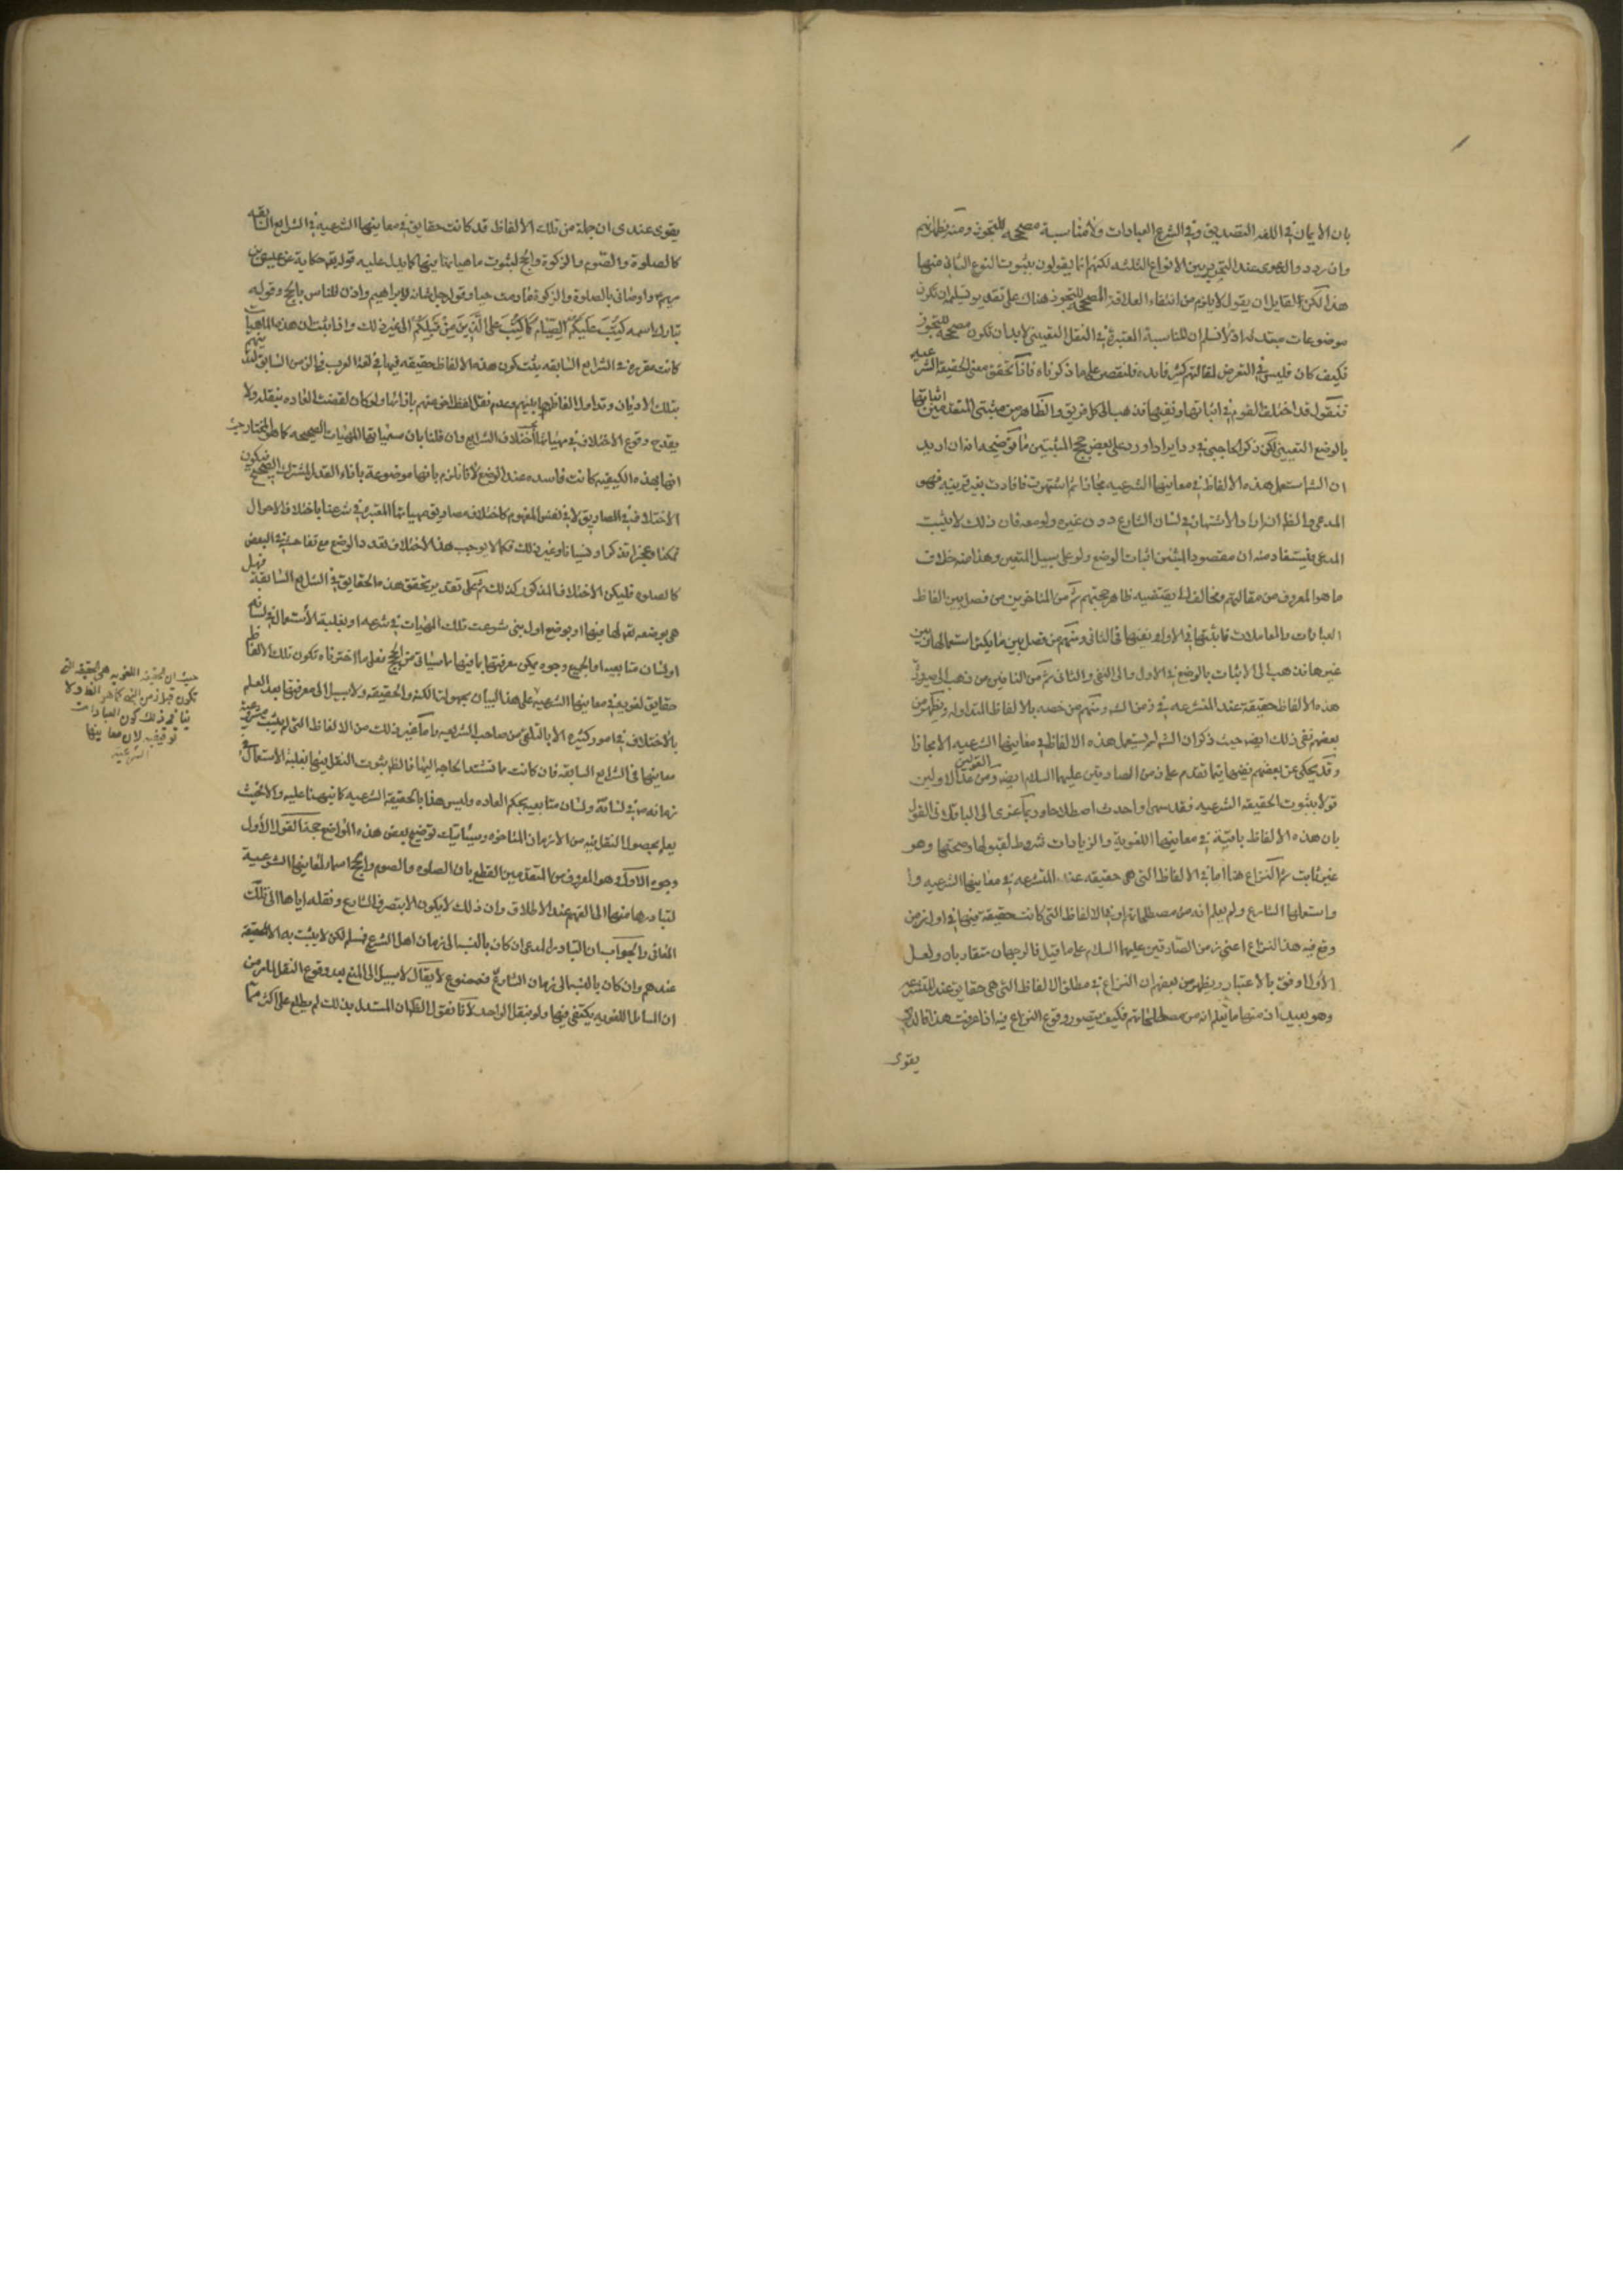 بان الايمان في اللغة التصديق وفي الشرع العبادات ولا مناسبة مصححه للتجوز ومنه يظهر انهم
وان ردد والدعوى عند التحرير بين الانواع الثلثه لكنهم انما يقولون بثبوت النوع الثانى منها
هذا لكن لقايل ان يقول لا يلزم من انتفاء العلاقة المصححه للتجوز هناك على تقديره تسليم ان تكون
موضوعات مبتداه اذ لا نسلم ان المناسبة المعتبرة في النقل التعيينى لابد ان تكون مصححه للتجوز
فكيف كان فليس في التعرض لمقالتهم كثير فايده فلنقتصر على ما ذكرناه فاذا تحقق معنى الحقيقة الشرعيه
فنقول قد اختلف القوم في اثباتها ونفيها فذهب الى كل فريق والظاهر من مثبتى المتقدمين اثباتها
بالوضع التعيينى لكن ذكر الحاجبي في رد ايراد اورد على بعض حجج المثبتين ما توضيحه انه ان اريد
ان الشارع استعمل هذه الالفاظ في معانيها الشرعيه مجازا ثم اشتهرت فافادت بغير قرينة فهو
المدعى والظ انه اراد الاشتهار في لسان الشارع دون غيره ولو معه فان ذلك لا يثبت
المدعى فيستفاد منه ان مقصود المثبتين اثبات الوضع ولو على سبيل التعين وهذا منه خلاف
ما هو المعروف من مقالتهم ومخالف لما يقتضيه ظاهر حجتهم ثم من المتاخرين من فصل بين الفاظ
العبادات والمعاملات فاثبتها في الاولى ونفيها في الثانى ومنهم من فصل بين ما يكثر استعمالها وبين
غيرها فذهب الى الاثبات بالوضع في الاول والى النفى في الثانى ثم من النافين من ذهب الى صيرورة
هذه الالفاظ حقيقة عند المتشرعه في زمن الش ومنهم من خصه بالالفاظ المتداوله ويظهر من
بعضهم نفى ذلك ايضا حيث ذكر ان الش لم يستعمل هذه الالفاظ في معانيها الشرعيه الا مجازا
وقد يحكى عن بعضهم نفيها فيما تقدم على زمن الصادقين عليهما السلم ايضا ومن عد القولين الاولين
قولا بثبوت الحقيقه الشرعيه فقد سها واحدث اصطلاحا وربما عزى الى الباقلانى القول
بان هذه الالفاظ باقية في معانيها اللغوية والزيادات شروط لقبولها وصحتها وهو
غير ثابت ثم النزاع هنا اما في الالفاظ التى هي حقيقه عند المتشرعه في معانيها الشرعيه و
واستعملها الشارع ولم يعلم انه من مصطلحاتهم او في الالفاظ التى كانت حقيقة فيها في اول زمن
وقع فيه هذا النزاع اعني زمن الصادقين عليهما السلم على ما قيل فالوجهان متقاربان ولعل
الاول اوفق بالاعتبار ويظهر من بعضهم ان النزاع في مطلق الالفاظ التى هي حقايق عند المتشرعه
وهو بعيد لان منها ما يعلم انه من مصطلحاتهم فكيف يتصور وقوع النزاع فيه اذا عرفت هذا فالذى
يقوى
يقوى عندى ان جملة من تلك الالفاظ قد كانت حقايق في معانيها الشرعيه في الشرايع السابقه
كالصلوة والصوم والزكوة والحج لثبوت ماهياتها فيها كما يدل عليه قوله تعه حكاية عن عيسى بن
مريم واوصانى بالصلوة والزكوة ما دمت حيا وقول جل شانه لابراهيم واذن للناس بالحج وقوله
تبارك اسمه كتب عليكم الصيام كما كتب على الذين من قبلكم الى غير ذلك واذا ثبت ان هذه الماهيات
كانت مقرره في الشرايع السابقه يثبت كون هذه الالفاظ حقيقه فيها في لغة العرب في الزمن السابق لتدينهم
بتلك الاديان وتداول الفاظها بينهم وعدم نقل لفظ اخر عنهم بازائها ولو كان لقضت العاده بنقله ولا
يقدح وقوع الاختلاف في مهياتها اختلاف الشرايع وان قلنا بان مسمياتها المهيات الصحيحه كما هو المختار حيث
انها بهذه الكيفيه كانت فاسده عند الوضع لانا نلتزم بانها موضوعة بازاء القدر المشترك الصحيح فيكون
الاختلاف في المصاديق لا في نفس المفهوم كاختلاف مصاديق مهياتها المعتبرة في شرعنا باختلاف الاحوال
تمكنا وعجزا تذكرا ونسيانا وغير ذلك فكما لا يوجب هذا الاختلاف تعدد الوضع مع تفاحشه في البعض
كالصلوه فليكن الاختلاف المذكور كذلك ثم على تقدير تحقق هذه الحقايق في الشرايع السابقة فهل
هي بوضعه تعه لها فيها او بوضع اول نبى شرعت تلك المهيات في شرعه او بغلبة الاستعمال في لسانهم
او لسان متابعيه او الجميع وجوه يمكن معرفتها بما فيها مما سيأتى من الحجج فعلى ما اخترناه تكون تلك الالفاظ
حقايق لغوية في معانيها الشرعيه على هذا البيان مجهولة الكنه والحقيقه ولا سبيل الى معرفتها بعد العلم
بالاختلاف في امور كثيره الا بالتلقى من صاحب الشريعه واما غير ذلك من الالفاظ التى لم يثبت مشروعية
معانيها في الشرايع السابقه فان كانت مما تشتد الحاجه اليها فالظ ثبوت النقل فيها بغلبة الاستعمال في
زمانه في لسانه ولسان متابعيه بحكم العاده وليس هذا بالحقيقه الشرعيه كما نبهنا عليه والا فحيث
يعلم بحصول النقل فيه من الازمان المتاخره وسيأتيك توضيح بعض هذه المواضع حجة القول الاول
وجوه الاول وهو المعروف من المتقدمين القطع بان الصلوه والصوم والحج اسماء لمعانيها الشرعية
لتبادرها منها الى الفهم عند الاطلاق وان ذلك لا يكون الا بتصرف الشارع ونقله اياها الى تلك
المعانى والجواب ان التبادر المدعى ان كان بالنسبة الى زمان اهل الشرع فمسلم لكن لا يثبت به الا الحقيقة
عندهم وان كان بالنسبة الى زمان الشارع فممنوع لا يقال لا سبيل الى المنع بعد وقوع النقل لما مر من
ان المسائل اللغويه يكتفى فيها ولو بنقل الواحد لانا نقول الظ ان المستدل بذلك لم يطلع على اكثر مما
حيث ان الحقيقة اللغويه هى الحقيقه التى
تكون قبل زمن النبى كما هو الظ ولا
ينافى ذلك كون العبادات
توقيفية لان معانيها
الشرعيه